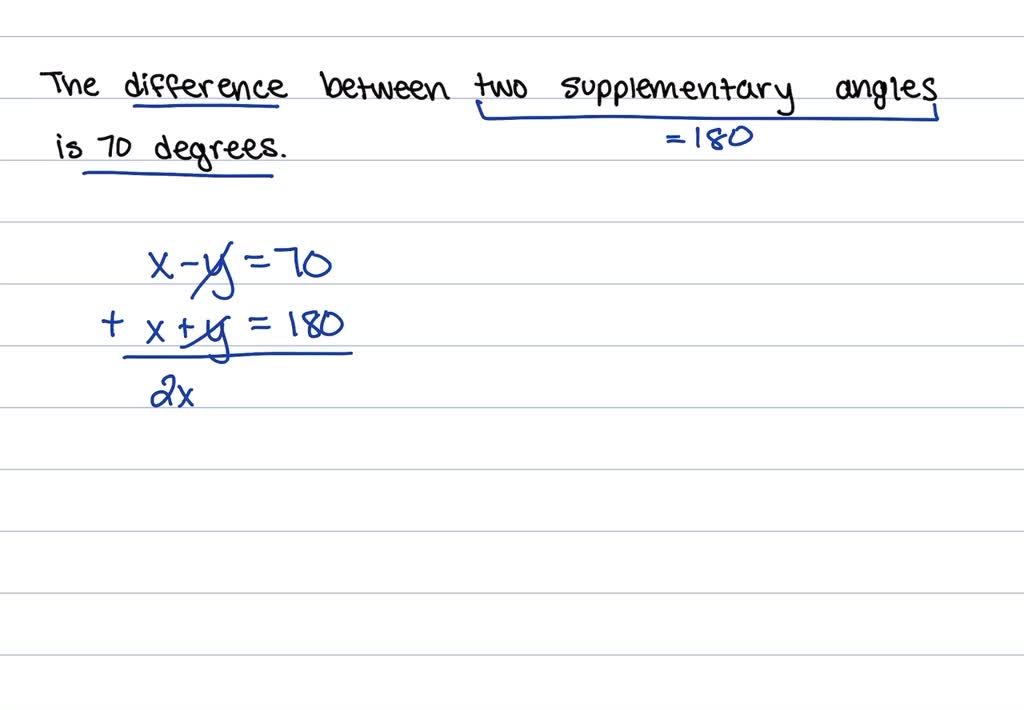 The difference between two supplementary angles
= 180
is 70 degrees.
x - y = 70
+ x + y = 180
2x